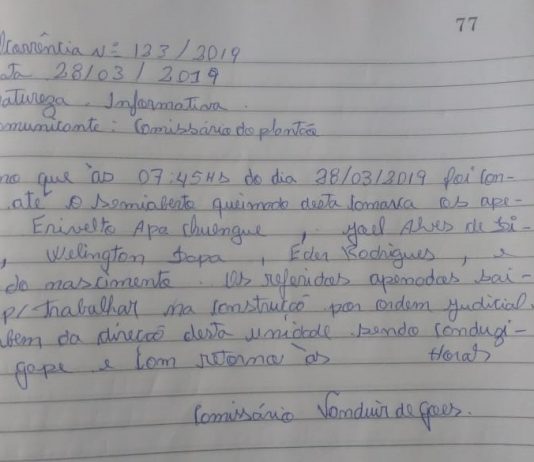 77
Ocorrência Nº 133/2019
ata 28/03/2019
atureza. Informativa.
omunicante: Comissário do plantão
mo que às 07:45Hs do dia 28/03/2019 foi con-
até o Semiaberto queimado desta Comarca os ape-
Erivelto Apa, Joel Alves de Si-
, Welington Sopa, Eder Rodrigues, e
do nascimento. Os referidos apenados sai-
p/ trabalhar na Construção por ordem judicial.
bem da direção desta unidade. Sendo conduzi-
gepe e com retorno às Horas
Comissário Vonduir de Goes.